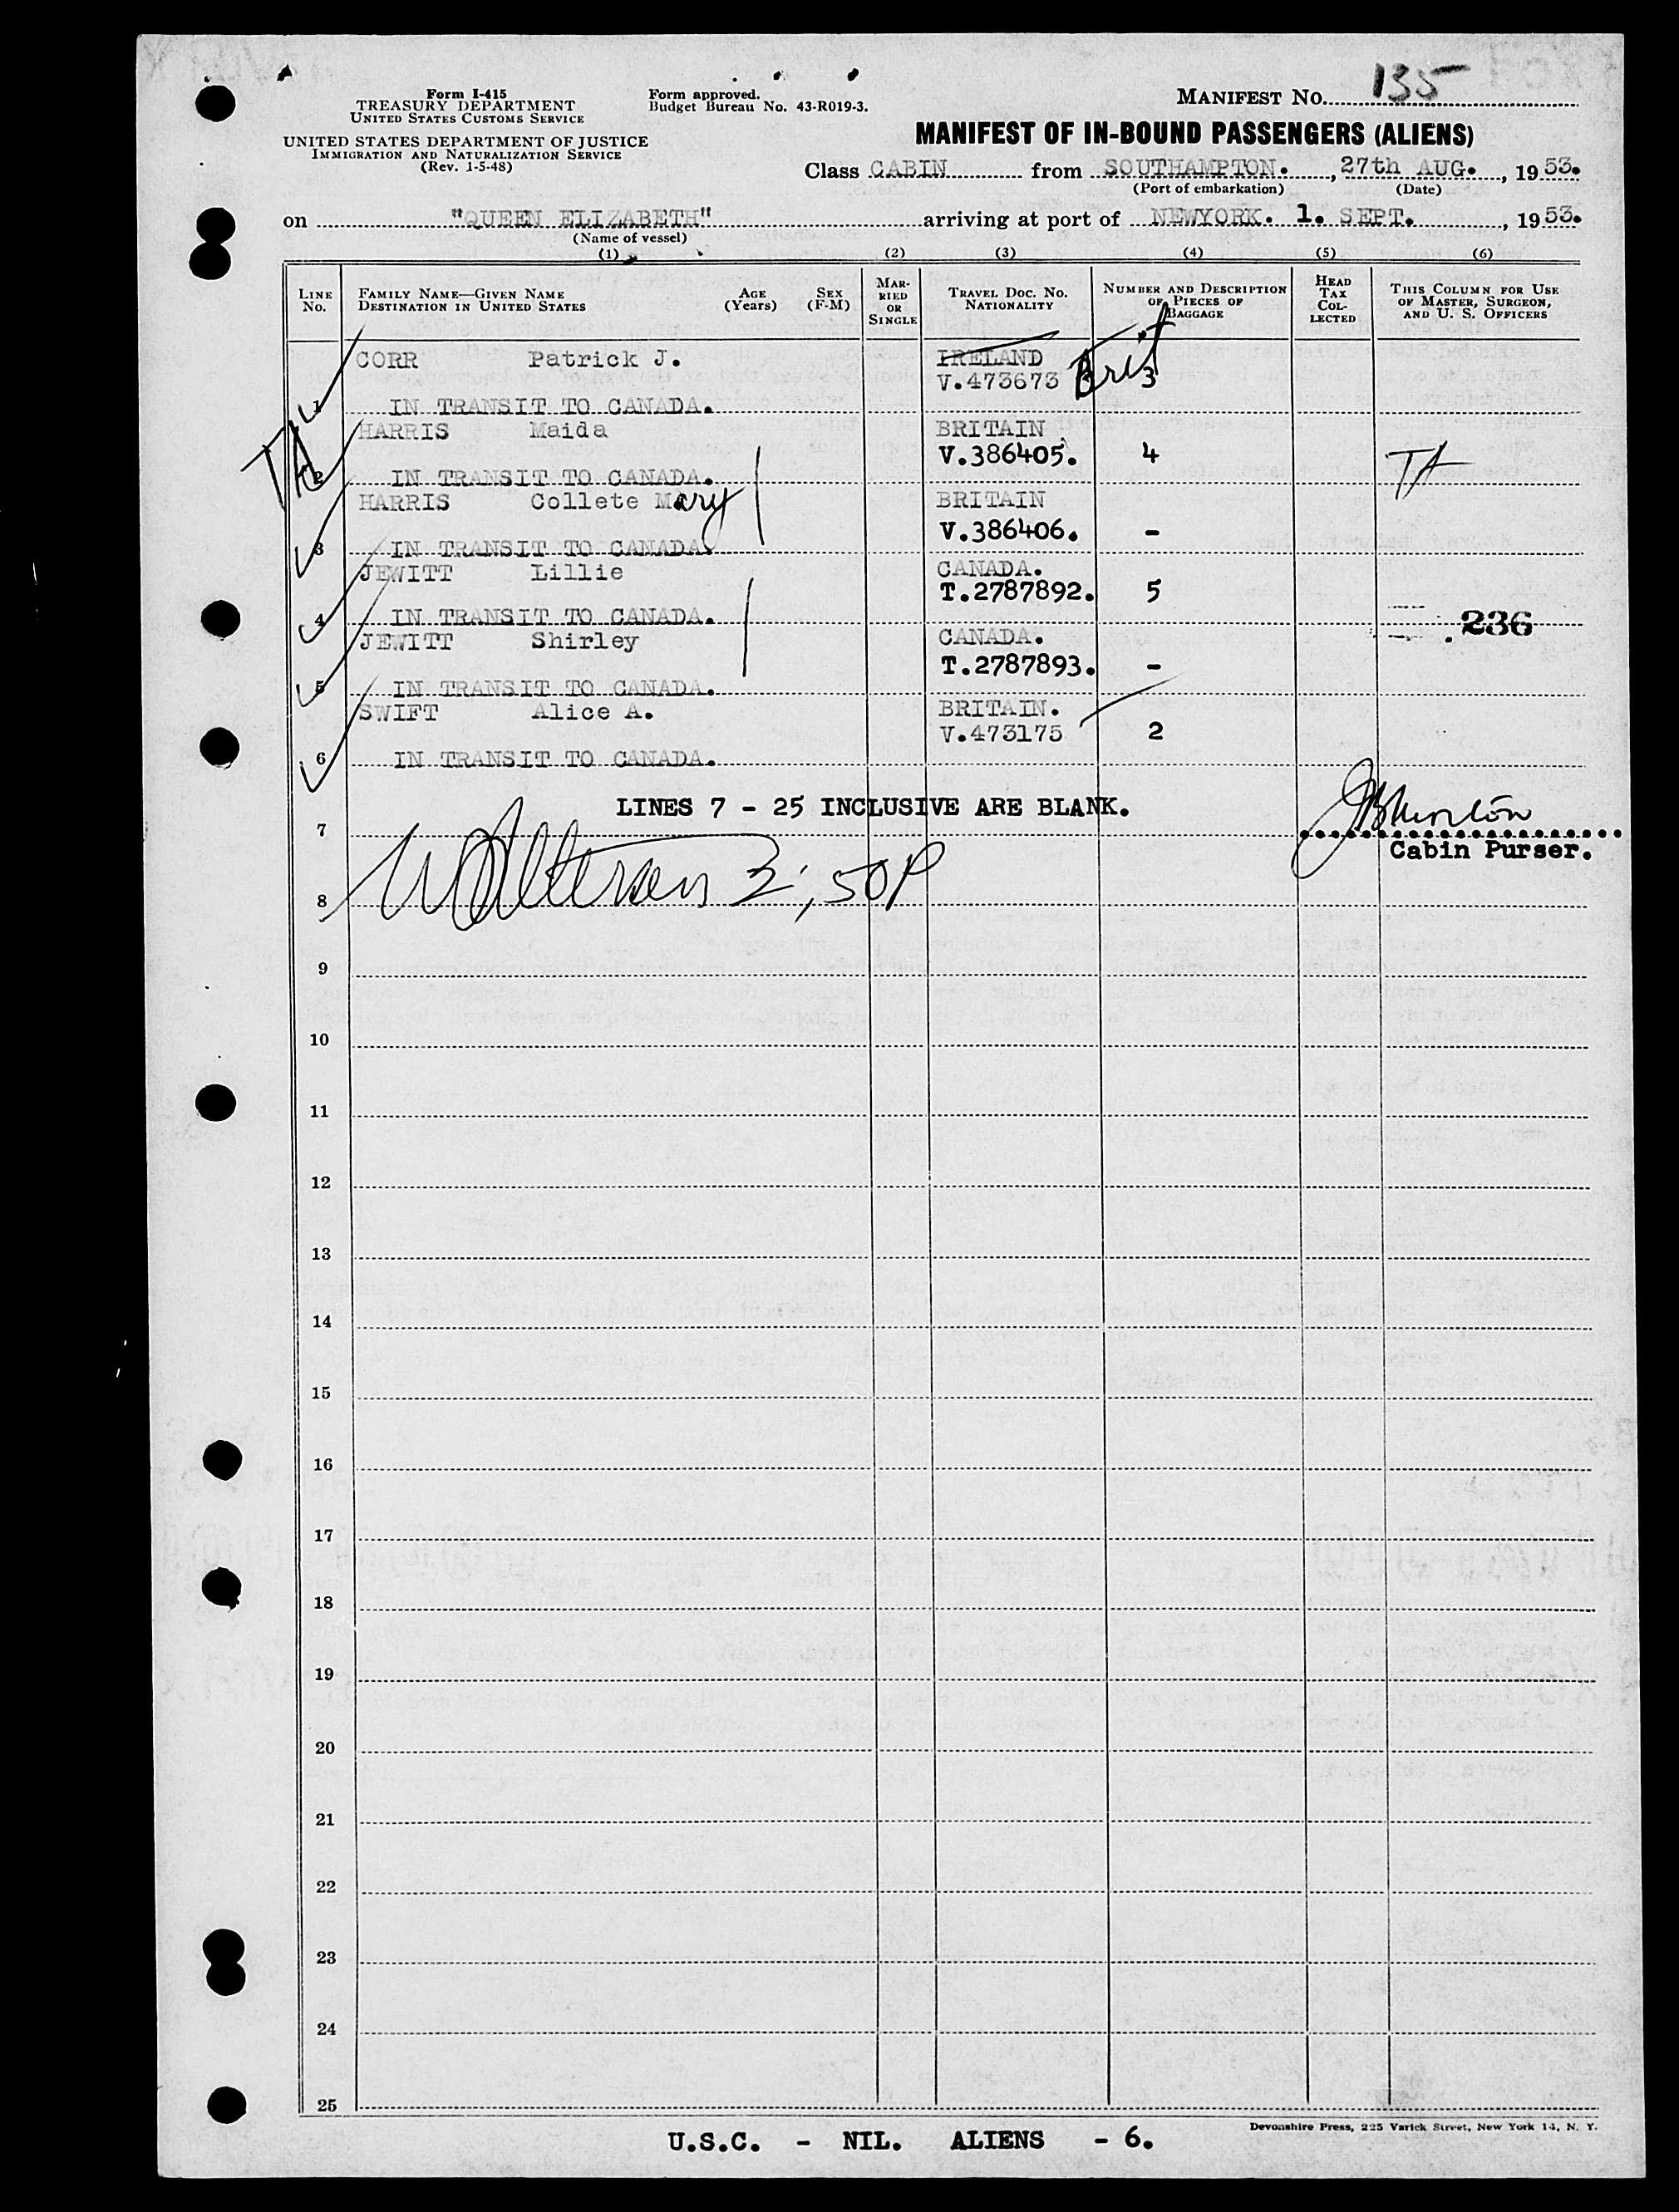 Form I-415
TREASURY DEPARTMENT
UNITED STATES CUSTOMS SERVICE
UNITED STATES DEPARTMENT OF JUSTICE
IMMIGRATION AND NATURALIZATION SERVICE
(Rev. 1-5-48)
Form approved.
Budget Bureau No. 43-R019-3.
MANIFEST No. 135
MANIFEST OF IN-BOUND PASSENGERS (ALIENS)
Class CABIN from SOUTHAMPTON. , 27th AUG. , 1953.
(Port of embarkation) (Date)
on "QUEEN ELIZABETH" arriving at port of NEWYORK. 1. SEPT. , 1953.
(Name of vessel)
(1) (2) (3) (4) (5) (6)
LINE No.
FAMILY NAME—GIVEN NAME
DESTINATION IN UNITED STATES
AGE (Years)
SEX (F-M)
MARRIED OR SINGLE
TRAVEL DOC. NO. NATIONALITY
NUMBER AND DESCRIPTION OF PIECES OF BAGGAGE
HEAD TAX COLLECTED
THIS COLUMN FOR USE OF MASTER, SURGEON, AND U. S. OFFICERS
CORR Patrick J. IRELAND Brit
V.473673 3
1 IN TRANSIT TO CANADA.
TA
HARRIS Maida BRITAIN
V.386405. 4 TA
2 IN TRANSIT TO CANADA.
HARRIS Collete Mary BRITAIN
V.386406. -
3 IN TRANSIT TO CANADA.
JEWITT Lillie CANADA.
T.2787892. 5
4 IN TRANSIT TO CANADA. 236
JEWITT Shirley CANADA.
T.2787893. -
5 IN TRANSIT TO CANADA.
SWIFT Alice A. BRITAIN.
V.473175 2
6 IN TRANSIT TO CANADA.
LINES 7 - 25 INCLUSIVE ARE BLANK.
7
Cabin Purser.
8
9
10
11
12
13
14
15
16
17
18
19
20
21
22
23
24
25
Devonshire Press, 225 Varick Street, New York 14, N. Y.
U.S.C. - NIL. ALIENS - 6.